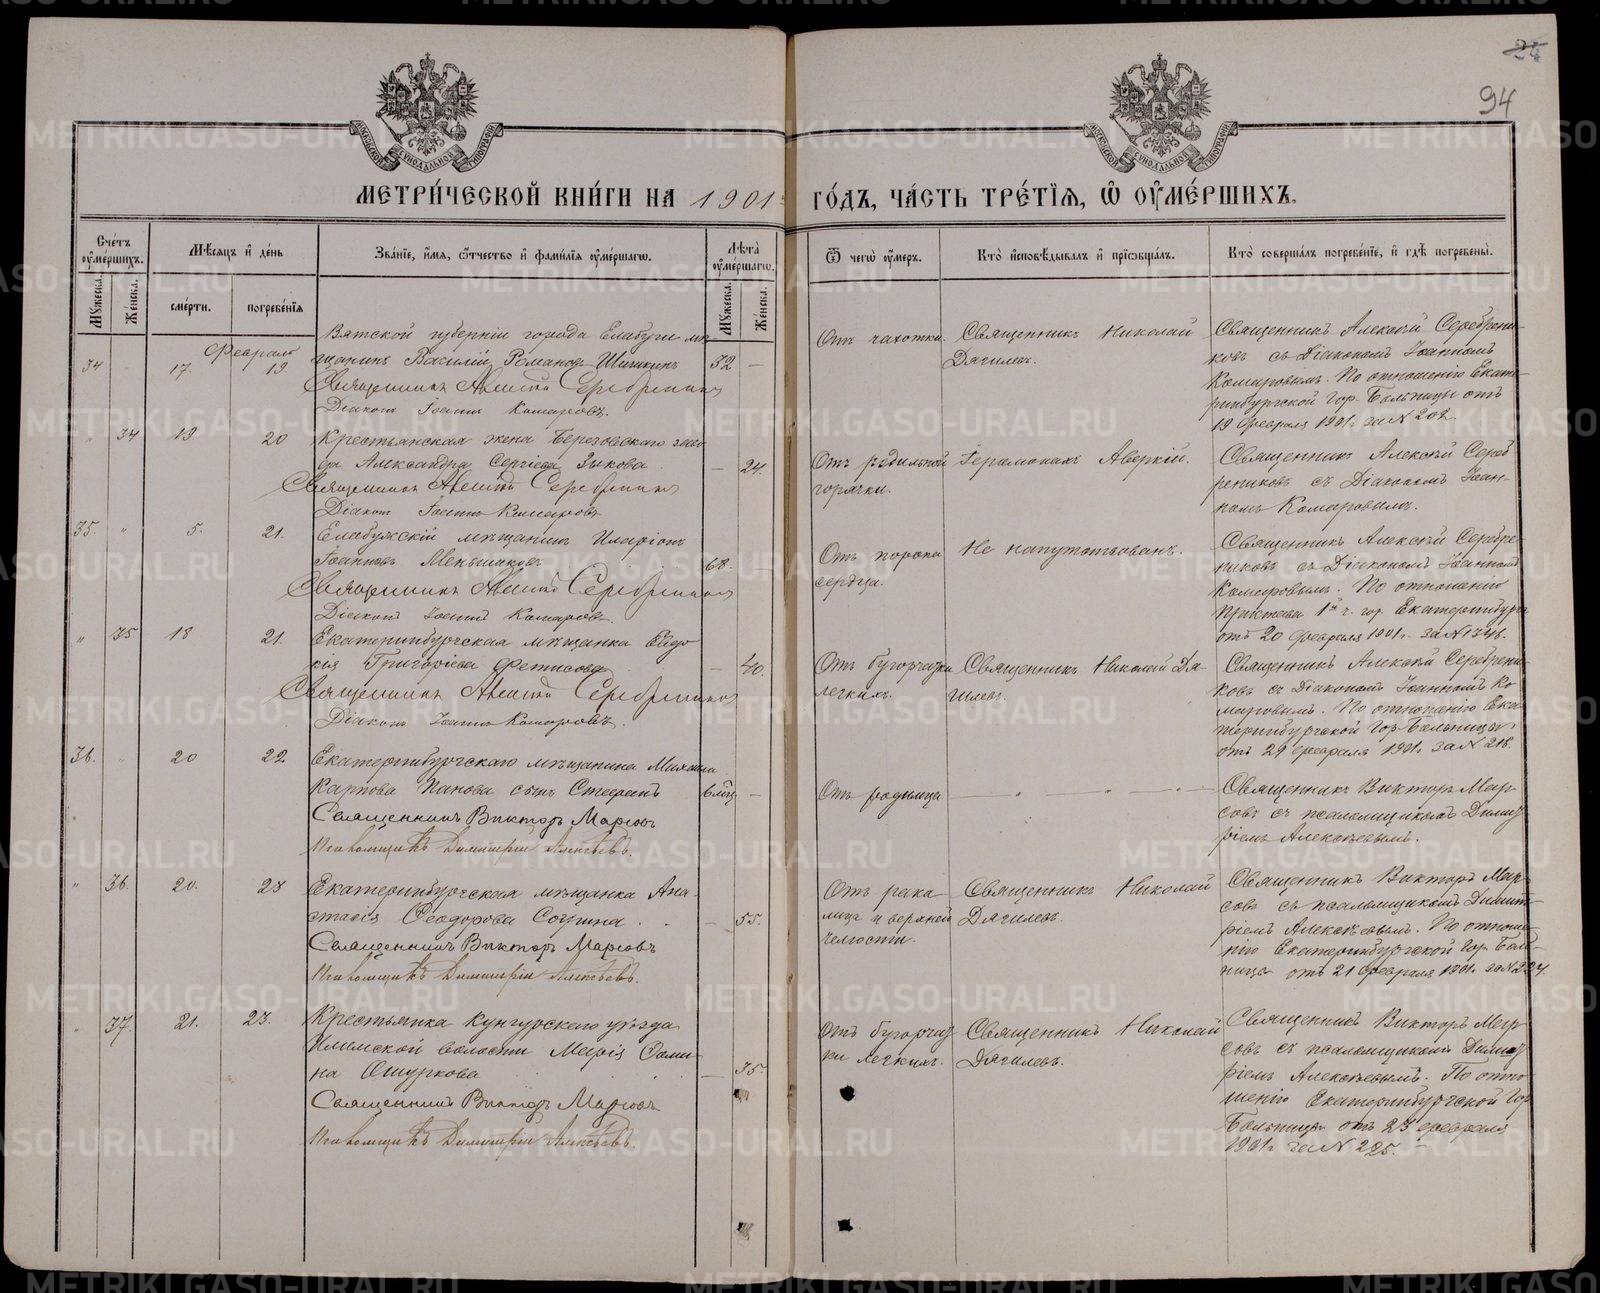 24
94
МЕТРИ́ЧЕСКОЙ КНИ́ГИ НА 1901 ГО́ДЪ, ЧА́СТЬ ТРЕ́ТІЯ, Ѡ ОУМЕ́РШИХЪ.
МОСКОВСКОЙ СУНОДАЛЬНОЙ ТИПОГРАФІИ
МОСКОВСКОЙ СУНОДАЛЬНОЙ ТИПОГРАФІИ
Сче́тъ оуме́ршихъ.
Му́жеска.
Же́нска.
Мѣ́сяцъ и де́нь
сме́рти.
погребе́нія
Зва́ніе, и́мя, ѻ́тчество и фами́лія оуме́ршагѡ.
Лѣ́та оуме́ршагѡ.
Му́жеска.
Же́нска.
Ѿ чегѡ̀ оу́меръ.
Кто̀ исповѣ́дывалъ и пріѡбща́лъ.
Кто̀ соверша́лъ погребе́ніе, и гдѣ̀ погребены̀.
Февраля
34 - 17. 19.
Вятской губерніи города Елабуги мѣ-
щанинъ Василій Романовъ Шишкинъ 52 —
Священникъ Алексій Серебренниковъ
Діаконъ Іоаннъ Комаровъ.
Отъ чахотки.
Священникъ Николай
Дягилевъ.
Священникъ Алексѣй Серебрени-
ковъ съ Діакономъ Іоанномъ
Комаровымъ. По отношенію Екате-
ринбургской Гор. Больницы отъ
19 февраля 1901 г. за № 202.
" 34 19 20
Крестьянская жена Березовскаго заво-
да Александра Сергіева Зыкова. — 24.
Священникъ Алексій Серебренниковъ
Діаконъ Іоаннъ Комаровъ
Отъ родильной
горячки.
Іеромонахъ Аверкій.
Священникъ Алексѣй Сереб-
рениковъ съ Діакономъ Іоан-
номъ Комаровымъ.
35. " 5. 21.
Елабужскій мѣщанинъ Иларіонъ
Іоанновъ Меньшиковъ 68. —
Священникъ Алексій Серебренниковъ
Діаконъ Іоаннъ Комаровъ.
Отъ порока
сердца.
Не напутствованъ.
Священникъ Алексѣй Серебре-
никовъ съ Діакономъ Іоанномъ
Комаровымъ. По отношенію
Пристава 1й ч. гор. Екатеринбурга
отъ 20 февраля 1901 г. за № 1348.
" 35 18 21.
Екатеринбургская мѣщанка Евдо-
кія Григоріева Фетисова — 40.
Священникъ Алексій Серебренниковъ
Діаконъ Іоаннъ Комаровъ.
Отъ бугорчатки
легкихъ.
Священникъ Николай Дя-
гилевъ.
Священникъ Алексѣй Серебрени-
ковъ съ Діакономъ Іоанномъ Ко-
маровымъ. По отношенію Ека-
теринбургской Гор. Больницы
отъ 21 февраля 1901 г. за № 218.
36. " 20 22.
Екатеринбургскаго мѣщанина Михаила
Карпова Панова сынъ Стефанъ 6 мѣс. —
Священникъ Викторъ Марсовъ
Псаломщикъ Димитрій Алексѣевъ.
Отъ родимца
— " — " — " —
Священникъ Викторъ Мар-
совъ съ псаломщикомъ Димит-
ріемъ Алексѣевымъ.
" 36. 20. 23
Екатеринбургская мѣщанка Ана-
стасія Ѳеодорова Согрина. — 55.
Священникъ Викторъ Марсовъ
Псаломщикъ Димитрій Алексѣевъ.
Отъ рака
лица и верхней
челюсти.
Священникъ Николай
Дягилевъ.
Священникъ Викторъ Мар-
совъ съ псаломщикомъ Димит-
ріемъ Алексѣевымъ. По отноше-
нію Екатеринбургской Гор. Боль-
ницы отъ 21 февраля 1901 г. за № 224.
" 37. 21. 23.
Крестьянка Кунгурскаго уѣзда
Илимской волости Марія Ѳоми-
на Ошуркова — 35.
Священникъ Викторъ Марсовъ
Псаломщикъ Димитрій Алексѣевъ.
Отъ бугорчат-
ки легкихъ.
Священникъ Николай
Дягилевъ.
Священникъ Викторъ Мар-
совъ съ псаломщикомъ Димит-
ріемъ Алексѣевымъ. По отно-
шенію Екатеринбургской Гор.
Больницы отъ 23 февраля
1901 г. за № 225. —
METRIKI.GASO-URAL.RU